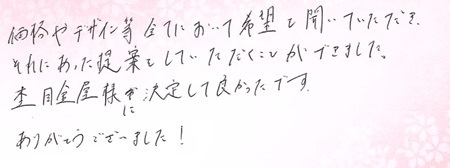 価格やデザイン等全てにおいて希望を聞いていただき、
それにあった提案をしていただくことができました。
杢目金屋様に決定して良かったです。
ありがとうございました!